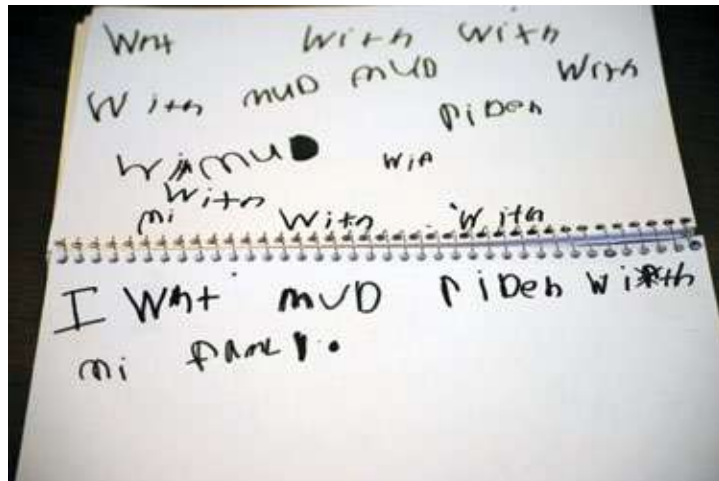 Wnt With With
With MUD MUD With
riDen
MUD Wia
With
mi With With
I Wnt MUD riDen With
mi